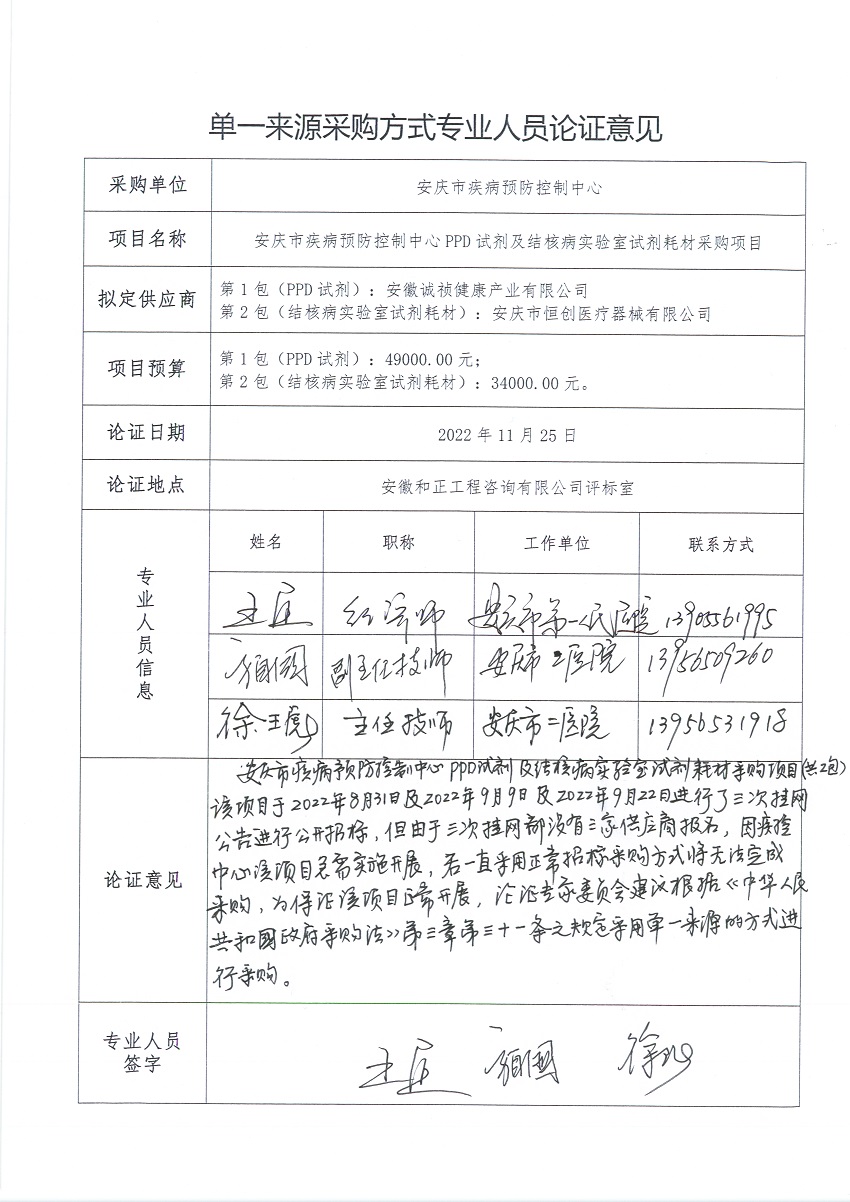 单一来源采购方式专业人员论证意见
采购单位 安庆市疾病预防控制中心
项目名称 安庆市疾病预防控制中心 PPD 试剂及结核病实验室试剂耗材采购项目
拟定供应商
第 1 包（PPD 试剂）：安徽诚祯健康产业有限公司
第 2 包（结核病实验室试剂耗材）：安庆市恒创医疗器械有限公司
项目预算
第 1 包（PPD 试剂）：49000.00 元；
第 2 包（结核病实验室试剂耗材）：34000.00 元。
论证日期 2022 年 11 月 25 日
论证地点 安徽和正工程咨询有限公司评标室
专业人员信息
姓名 职称 工作单位 联系方式
经济师 安庆市第一人民医院 13905561995
副主任技师 安庆市二医院 13956509260
徐王虎 主任技师 安庆市二医院 13956531918
论证意见
安庆市疾病预防控制中心PPD试剂及结核病实验室试剂耗材采购项目(共2包)
该项目于2022年8月31日及2022年9月9日及2022年9月22日进行了三次挂网
公告进行公开招标，但由于三次挂网都没有三家供应商报名，因疾控
中心该项目急需实施开展，若一直采用正常招标采购方式将无法完成
采购，为保证该项目正常开展，论证专家委员会建议根据《中华人民
共和国政府采购法》第三章第三十一条之规定采用单一来源的方式进
行采购。
专业人员
签字